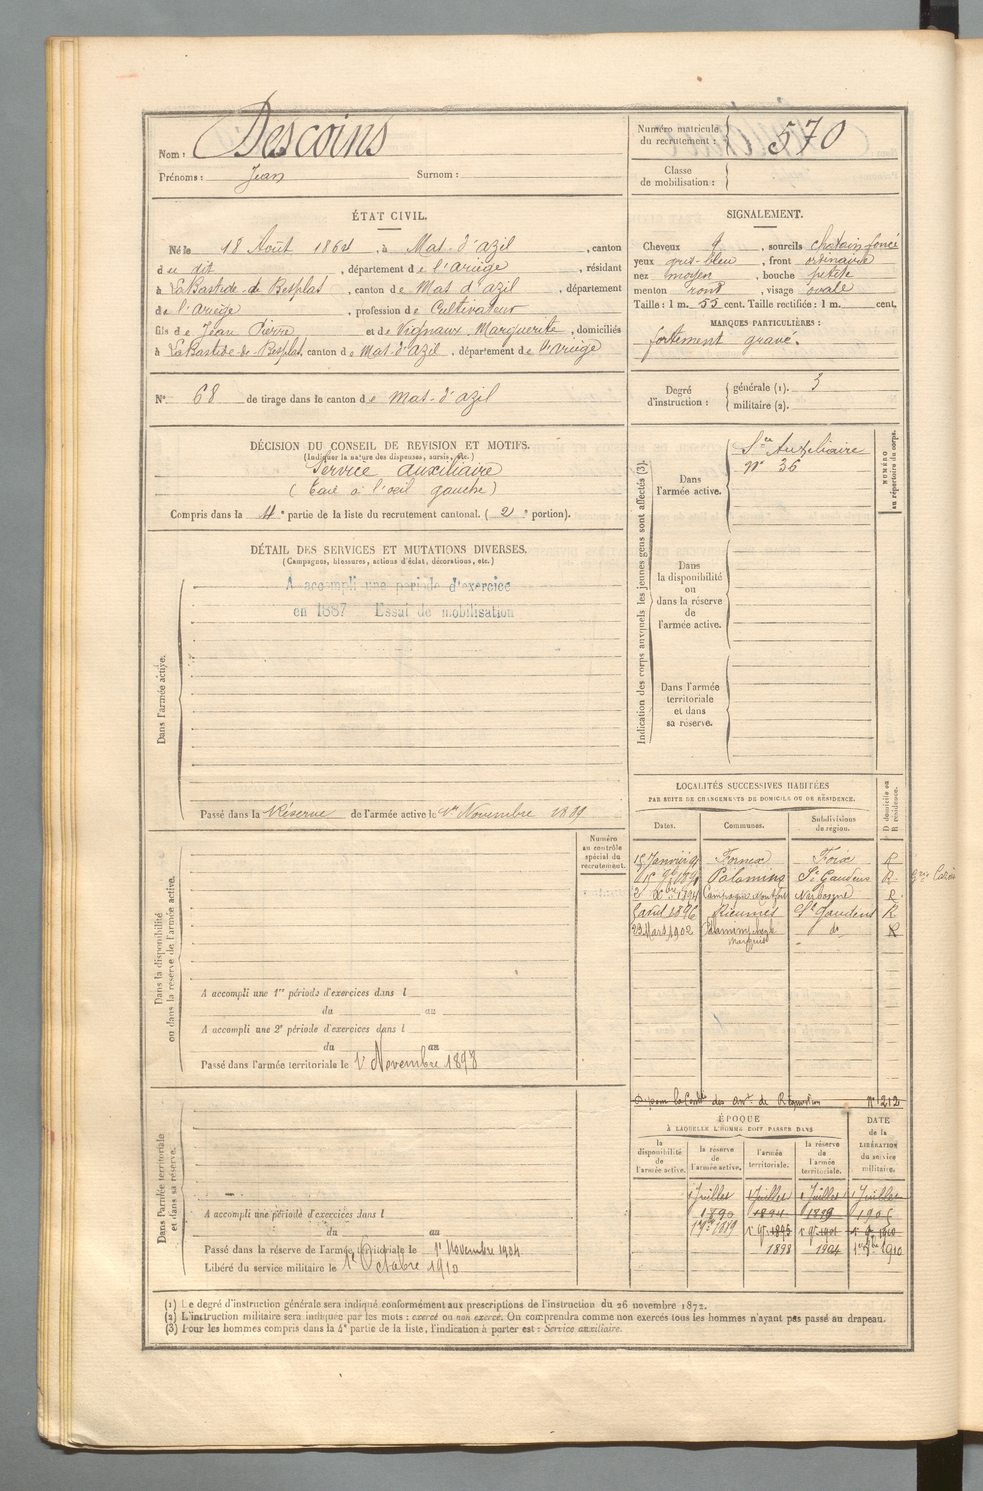 Nom : Descoins
Prénoms : Jean Surnom :
Numéro matricule du recrutement : 570
Classe de mobilisation :
ÉTAT CIVIL.
Né le 18 Août 186 , à Mas-d'azil , canton
du dit , département de l'ariège , résidant
à LaBastide-de Besplas , canton de Mas d'azil , département
de l'Ariège , profession de Cultivateur
fils de Jean Pierre et de Vignaux Marguerite , domiciliés
à LaBastide-de-Besplas, canton de Mas-d'Azil , département de l'Ariège
N° 68 de tirage dans le canton de Mas-d'azil
SIGNALEMENT.
Cheveux , sourcils chatain foncé
yeux gris-bleu , front ordinaire
nez moyen , bouche petite
menton rond , visage ovale
Taille : 1 m. 55 cent. Taille rectifiée : 1 m. cent.
MARQUES PARTICULIÈRES :
fortement gravé.
Degré d'instruction : générale (1). 3
militaire (2).
DÉCISION DU CONSEIL DE REVISION ET MOTIFS.
(Indiquer la nature des dispenses, sursis, etc.)
Service auxiliaire
(Taie à l'œil gauche)
Compris dans la 4e partie de la liste du recrutement cantonal. ( 2e portion).
DÉTAIL DES SERVICES ET MUTATIONS DIVERSES.
(Campagnes, blessures, actions d'éclat, décorations, etc.)
Dans l'armée active.
A accompli une période d'exercice
en 1887 Essai de mobilisation
Passé dans la Réserve de l'armée active le 1er Novembre 1889
Indication des corps auxquels les jeunes gens sont affectés (3).
NUMÉRO au répertoire du corps.
Dans l'armée active.
Sce Auxiliaire
n° 36
Dans la disponibilité ou dans la réserve de l'armée active.
Dans l'armée territoriale et dans sa réserve.
LOCALITÉS SUCCESSIVES HABITÉES
PAR SUITE DE CHANGEMENTS DE DOMICILE OU DE RÉSIDENCE.
D domicile ou R résidence.
Dates. Communes. Subdivisions de région.
15 Janvier 91 Fornex Foix R
Palamins St Gaudens R
1894 Campagne Narbonne R
avril 1896 Rieumes St Gaudens R
23 Mars 1902 do R
Dans la disponibilité ou dans la réserve de l'armée active.
Numéro au contrôle spécial du recrutement.
A accompli une 1re période d'exercices dans l
du au
A accompli une 2e période d'exercices dans l
du au
Passé dans l'armée territoriale le 1er Novembre 1898
des de Réquisition N° 212
Dans l'armée territoriale et dans sa réserve.
A accompli une période d'exercices dans l
du au
Passé dans la réserve de l'armée territoriale le 1er Novembre 1904
Libéré du service militaire le 1er Octobre 1910
ÉPOQUE
À LAQUELLE L'HOMME DOIT PASSER DANS
DATE de la LIBÉRATION du service militaire.
la disponibilité de l'armée active.
la réserve de l'armée active.
l'armée territoriale.
la réserve de l'armée territoriale.
1 Juillet 1 Juillet 1 Juillet 1 Juillet
1890 1894 1899 1905
1889 1895 1901 1910
1898 1904 1910
(1) Le degré d'instruction générale sera indiqué conformément aux prescriptions de l'instruction du 26 novembre 1872.
(2) L'instruction militaire sera indiquée par les mots : exercé ou non exercé. On comprendra comme non exercés tous les hommes n'ayant pas passé au drapeau.
(3) Pour les hommes compris dans la 4e partie de la liste, l'indication à porter est : Service auxiliaire.